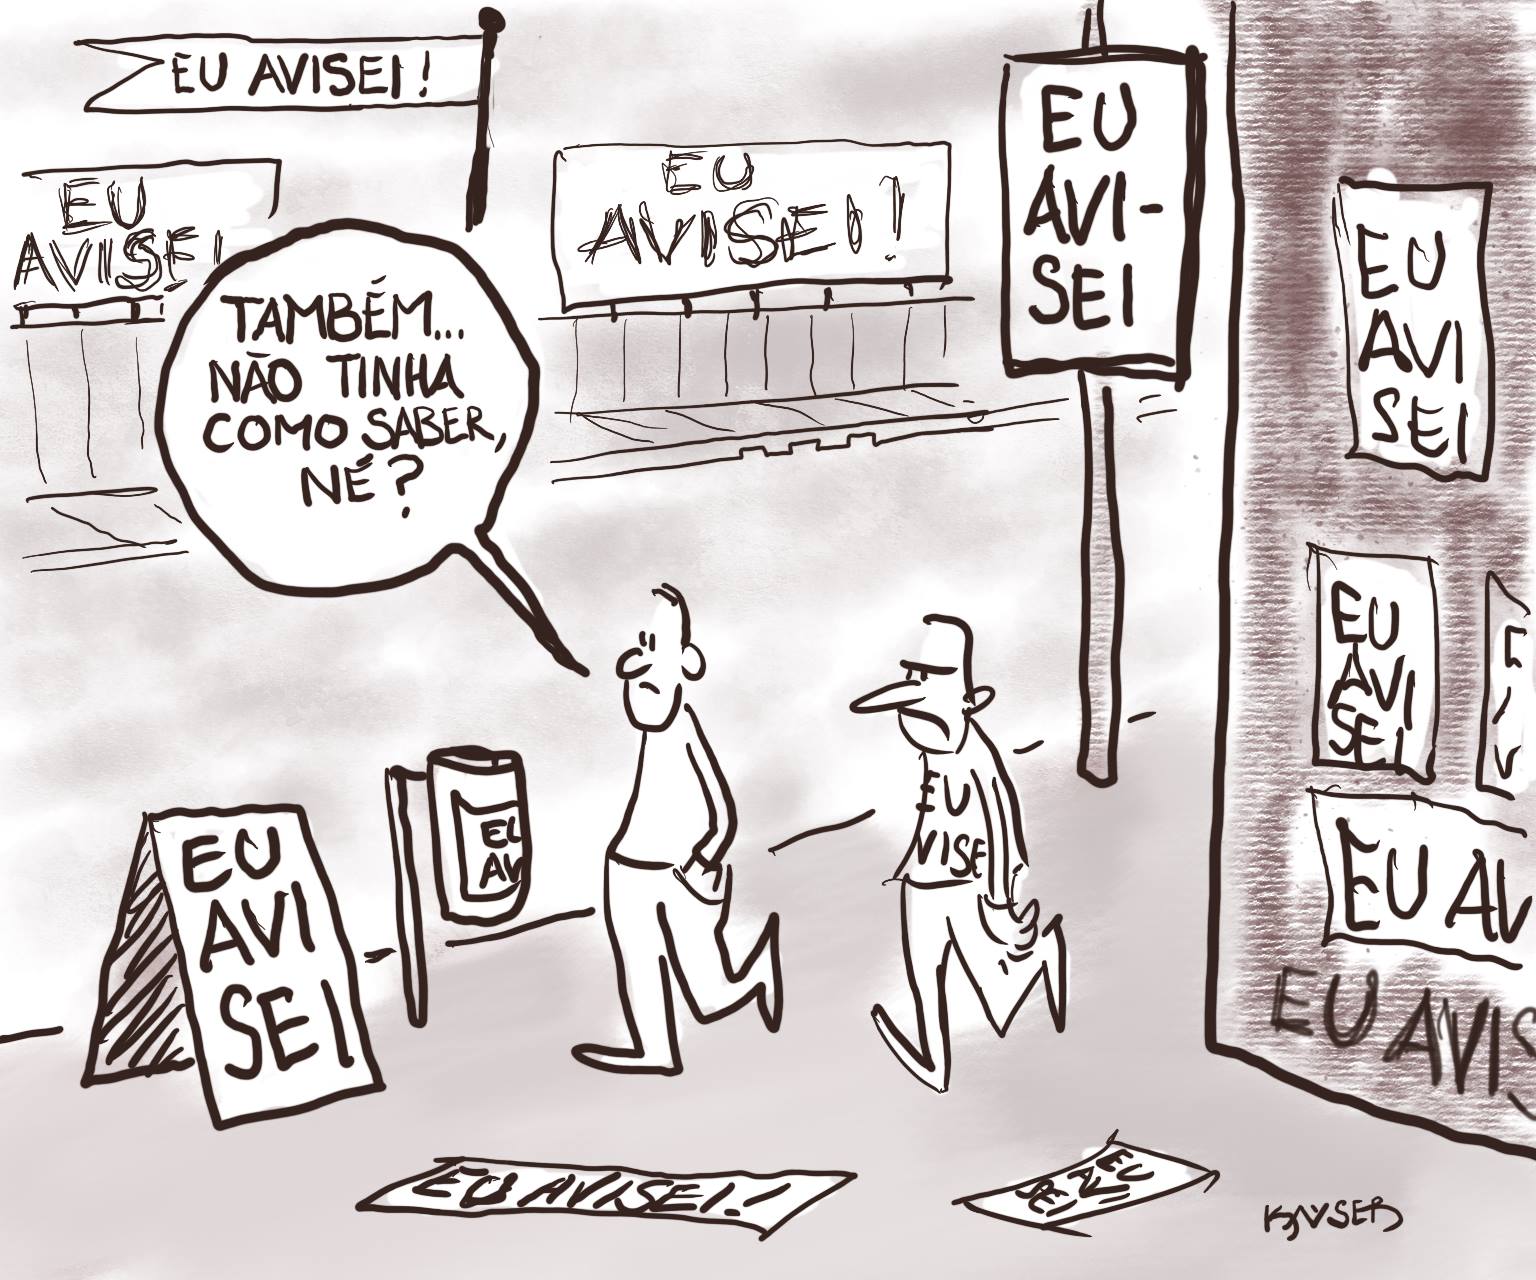 EU AVISEI!
EU
AVISEI
EU
AVISEI!
EU
AVI-
SEI
EU
AVI
SEI
TAMBÉM...
NÃO TINHA
COMO SABER,
NÉ?
EU
AVI
SEI
EU
AV
EU
AVI
SEI
EU
VISE
EU AV
EU AVIS
EU AVISEI!
EU
AVI
SEI
KAYSER